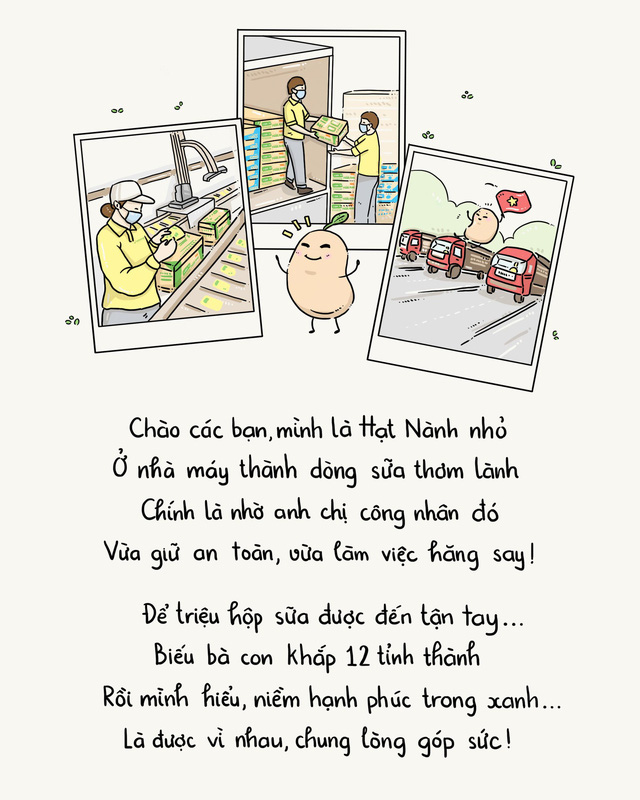 Chào các bạn, mình là Hạt Nành nhỏ
Ở nhà máy thành dòng sữa thơm lành
Chính là nhờ anh chị công nhân đó
Vừa giữ an toàn, vừa làm việc hăng say!
Để triệu hộp sữa được đến tận tay...
Biếu bà con khắp 12 tỉnh thành
Rồi mình hiểu, niềm hạnh phúc trong xanh...
Là được vì nhau, chung lòng góp sức!